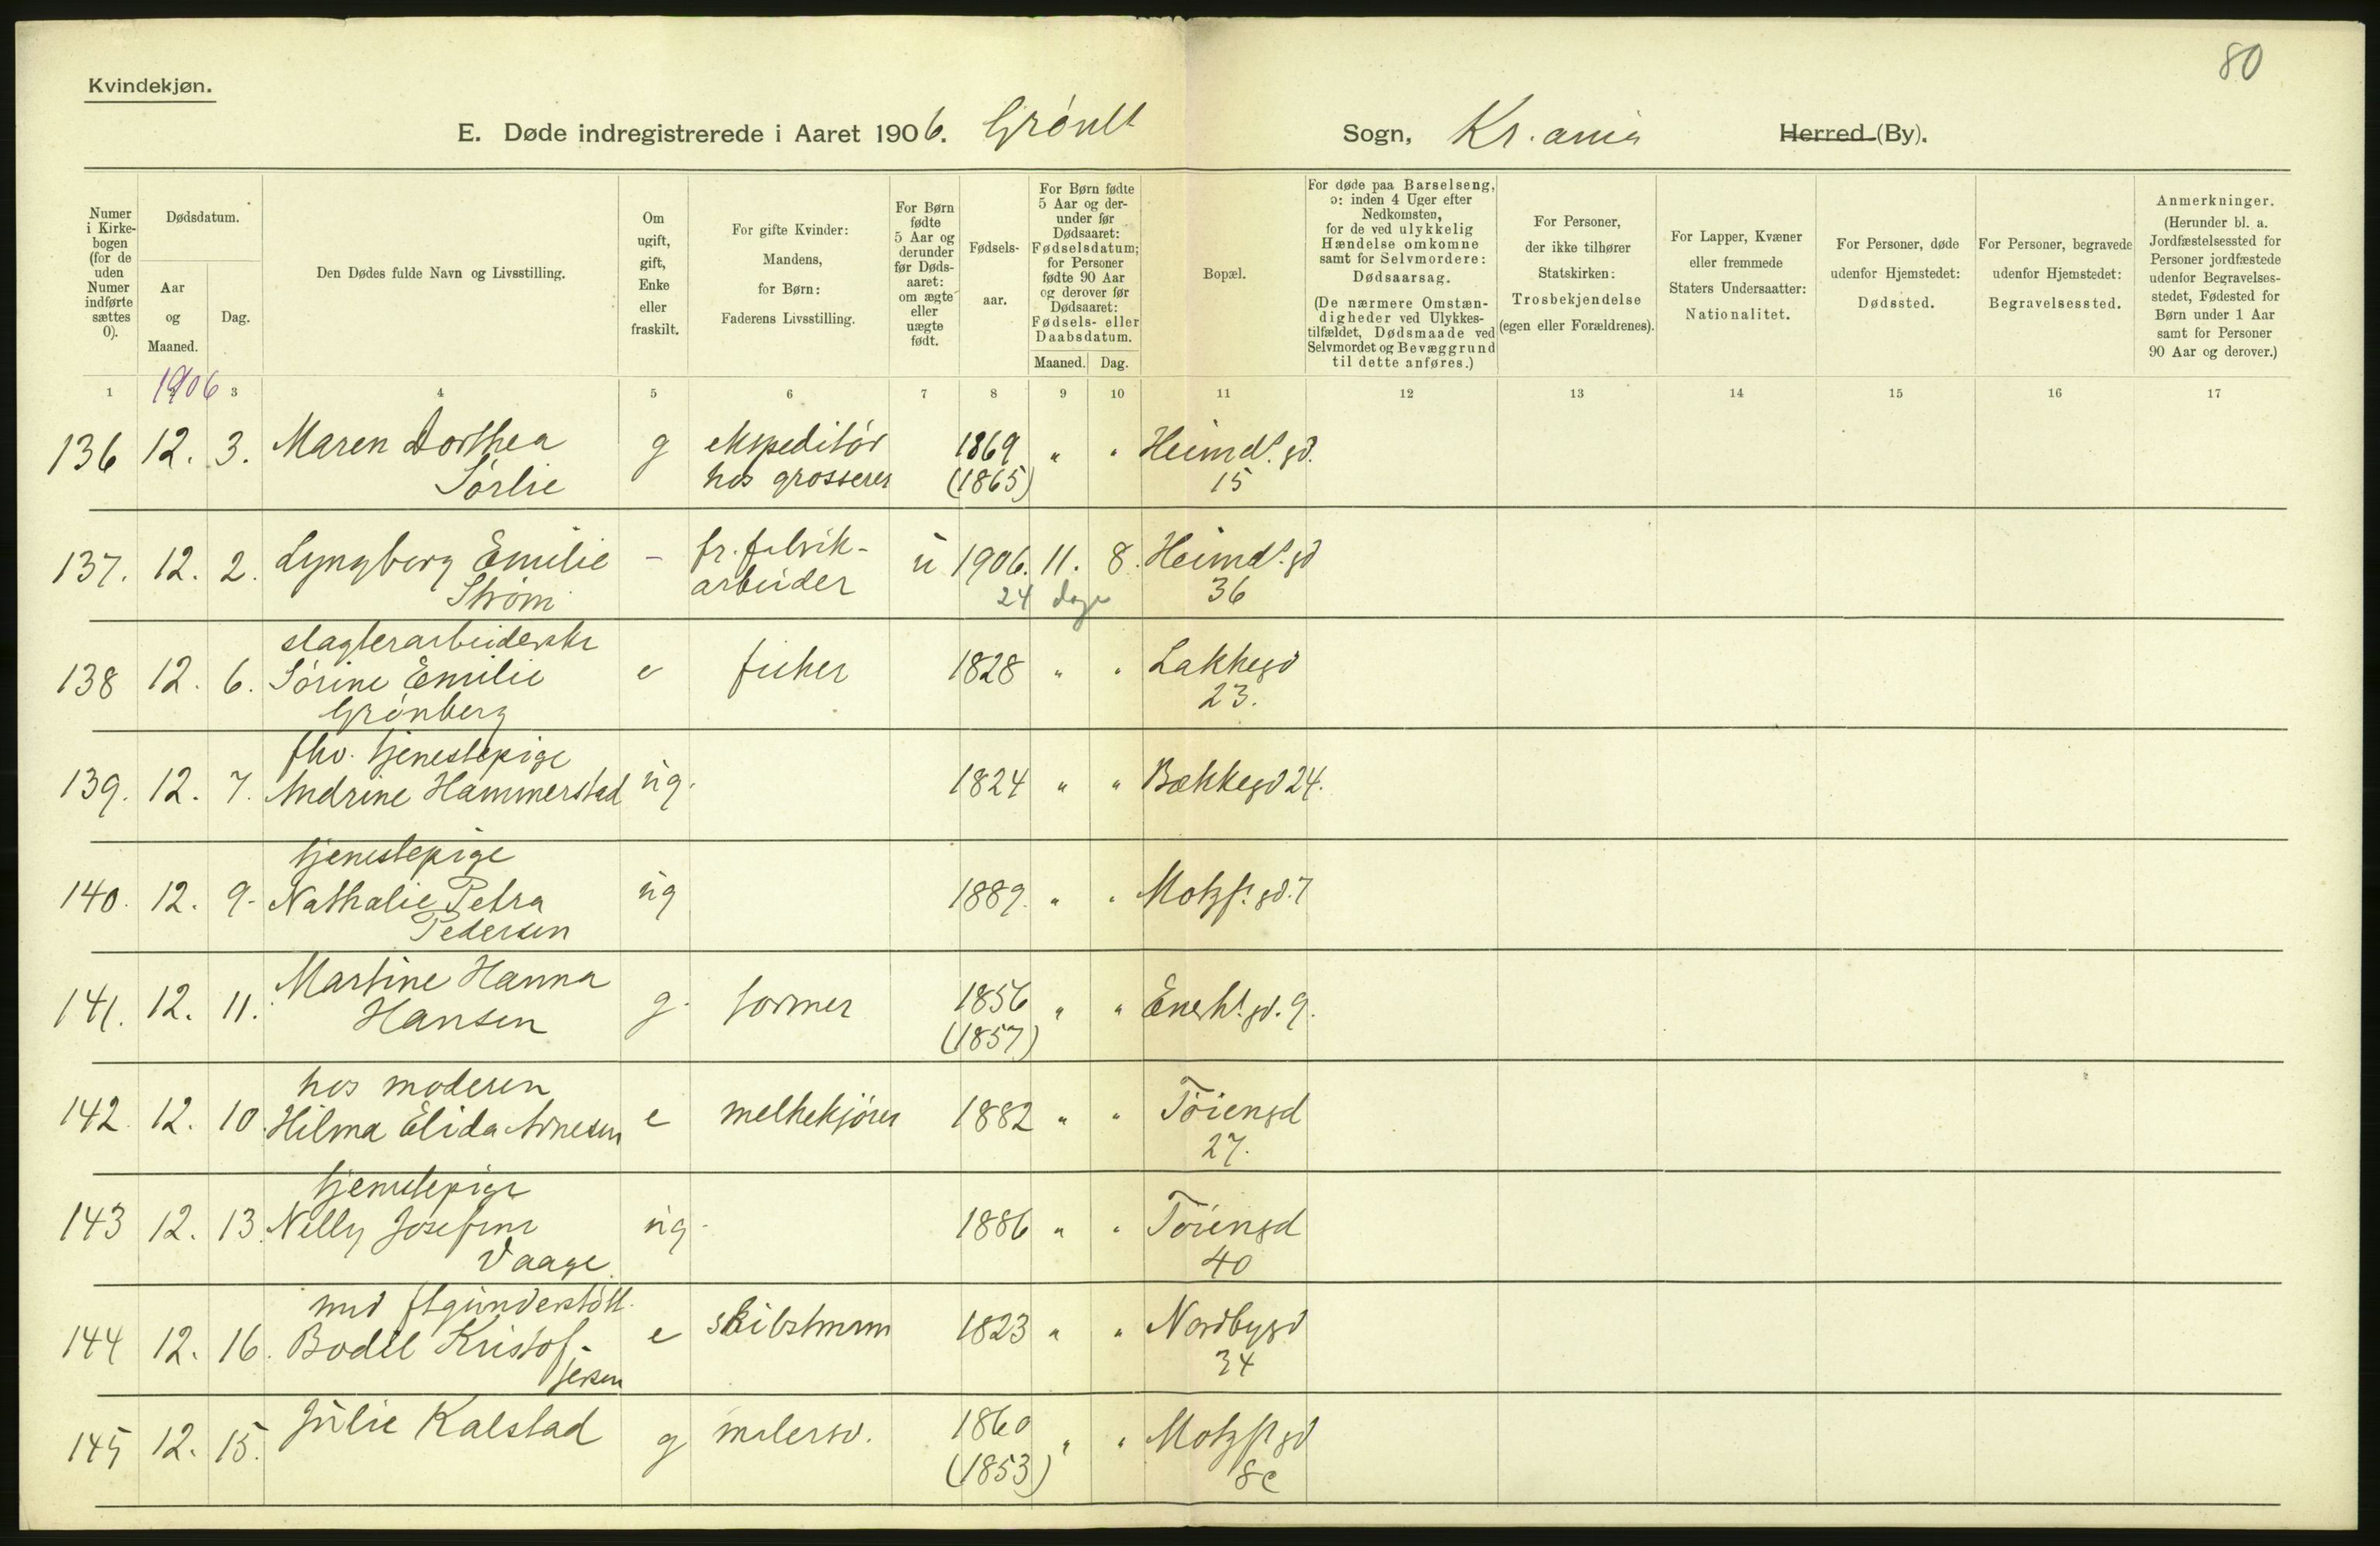 80
Kvindekjøn.
E. Døde indregistrerede i Aaret 1906. Grønl Sogn, Kr.ania Herred (By).
Numer i Kirke-bogen (for de uden Numer indførte sættes 0).
Dødsdatum.
Aar og Maaned.
Dag.
Den Dødes fulde Navn og Livsstilling.
Om ugift, gift, Enke eller fraskilt.
For gifte Kvinder: Mandens, for Børn: Faderens Livsstilling.
For Børn fødte 5 Aar og derunder før Døds-aaret: om ægte eller uægte født.
Fødsels-aar.
For Børn fødte 5 Aar og der-under før Dødsaaret: Fødselsdatum; for Personer fødte 90 Aar og derover før Dødsaaret: Fødsels- eller Daabsdatum.
Maaned. Dag.
Bopæl.
For døde paa Barselseng, ɔ: inden 4 Uger efter Nedkomsten, for de ved ulykkelig Hændelse omkomne samt for Selvmordere: Dødsaarsag.
(De nærmere Omstæn-digheder ved Ulykkes-tilfældet, Dødsmaade ved Selvmordet og Bevæggrund til dette anføres.)
For Personer, der ikke tilhører Statskirken: Trosbekjendelse (egen eller Forældrenes).
For Lapper, Kvæner eller fremmede Staters Undersaatter: Nationalitet.
For Personer, døde udenfor Hjemstedet: Dødssted.
For Personer, begravede udenfor Hjemstedet: Begravelsessted.
Anmerkninger.
(Herunder bl. a. Jordfæstelsessted for Personer jordfæstede udenfor Begravelses-stedet, Fødested for Børn under 1 Aar samt for Personer 90 Aar og derover.)
1 2 3 4 5 6 7 8 9 10 11 12 13 14 15 16 17
1906
136 12. 3. Maren Dorthea g ekspeditör 1869 " " Heimd. gd.
Sörlie hos grosserer (1865) 15
137. 12. 2. Lyngborg Emilie - fr. fabrik- u 1906. 11. 8. Heimd. gd
Ström arbeider 24 dage 36
slagterarbeiderske
138 12. 6. Sörine Emilie e fisker 1828 " " Lakkegd
Grönberg 23.
fhv. tjenestepige
139. 12. 7. Andrine Hammerstad ug. 1824 " " Bækkegd 24.
tjenestepige
140. 12. 9. Nathalie Petra ug 1889. " " Motzf. gd. 7
Pedersen
Martine Hanna
141. 12. 11. Hansen g. former 1856 " " Enerh. gd. 9.
(1857)
hos moderen
142. 12. 10. Hilma Elida Arnesen e melkekjörer 1882 " " Töiengd
27.
tjenestepige
143 12. 13. Nelly Josefine ug. 1886 " " Töiengd
Vaage 40
144 12. 16. Bodil Kristof- e skibstmrm 1823 " " Nordbygd
fersen 34
145 12. 15. Julie Kalstad g malersv. 1860 " " Motzf. gd
(1853) 8c